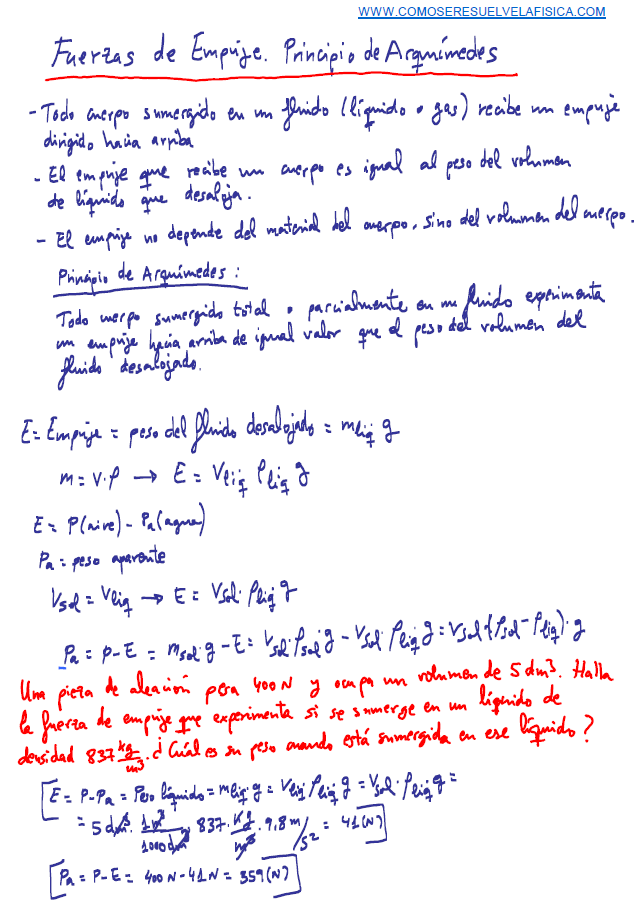 WWW.COMOSERESUELVELAFISICA.COM
Fuerzas de Empuje. Principio de Arquímedes
- Todo cuerpo sumergido en un fluido (líquido o gas) recibe un empuje
dirigido hacia arriba
- El empuje que recibe un cuerpo es igual al peso del volumen
de líquido que desaloja.
- El empuje no depende del material del cuerpo, sino del volumen del cuerpo.
Principio de Arquímedes:
Todo cuerpo sumergido total o parcialmente en un fluido experimenta
un empuje hacia arriba de igual valor que el peso del volumen del
fluido desalojado.
E = Empuje = peso del fluido desalojado = mliq g
m = V·ρ → E = Vliq ρliq g
E = P(aire) - Pa(agua)
Pa = peso aparente
Vsol = Vliq → E = Vsol·ρliq g
Pa = P - E = msol·g - E = Vsol·ρsol·g - Vsol·ρliq g = Vsol·(ρsol - ρliq)·g
Una pieza de aleación pesa 400 N y ocupa un volumen de 5 dm³. Halla
la fuerza de empuje que experimenta si se sumerge en un líquido de
densidad 837 kg/m³. ¿Cuál es su peso cuando está sumergida en ese líquido?
E = P - Pa = Peso líquido = mliq·g = Vliq ρliq g = Vsol·ρliq g =
= 5 dm³ · 1m³/1000dm³ · 837 · kg/m³ · 9,8 m/s² = 41(N)
Pa = P - E = 400 N - 41 N = 359(N)